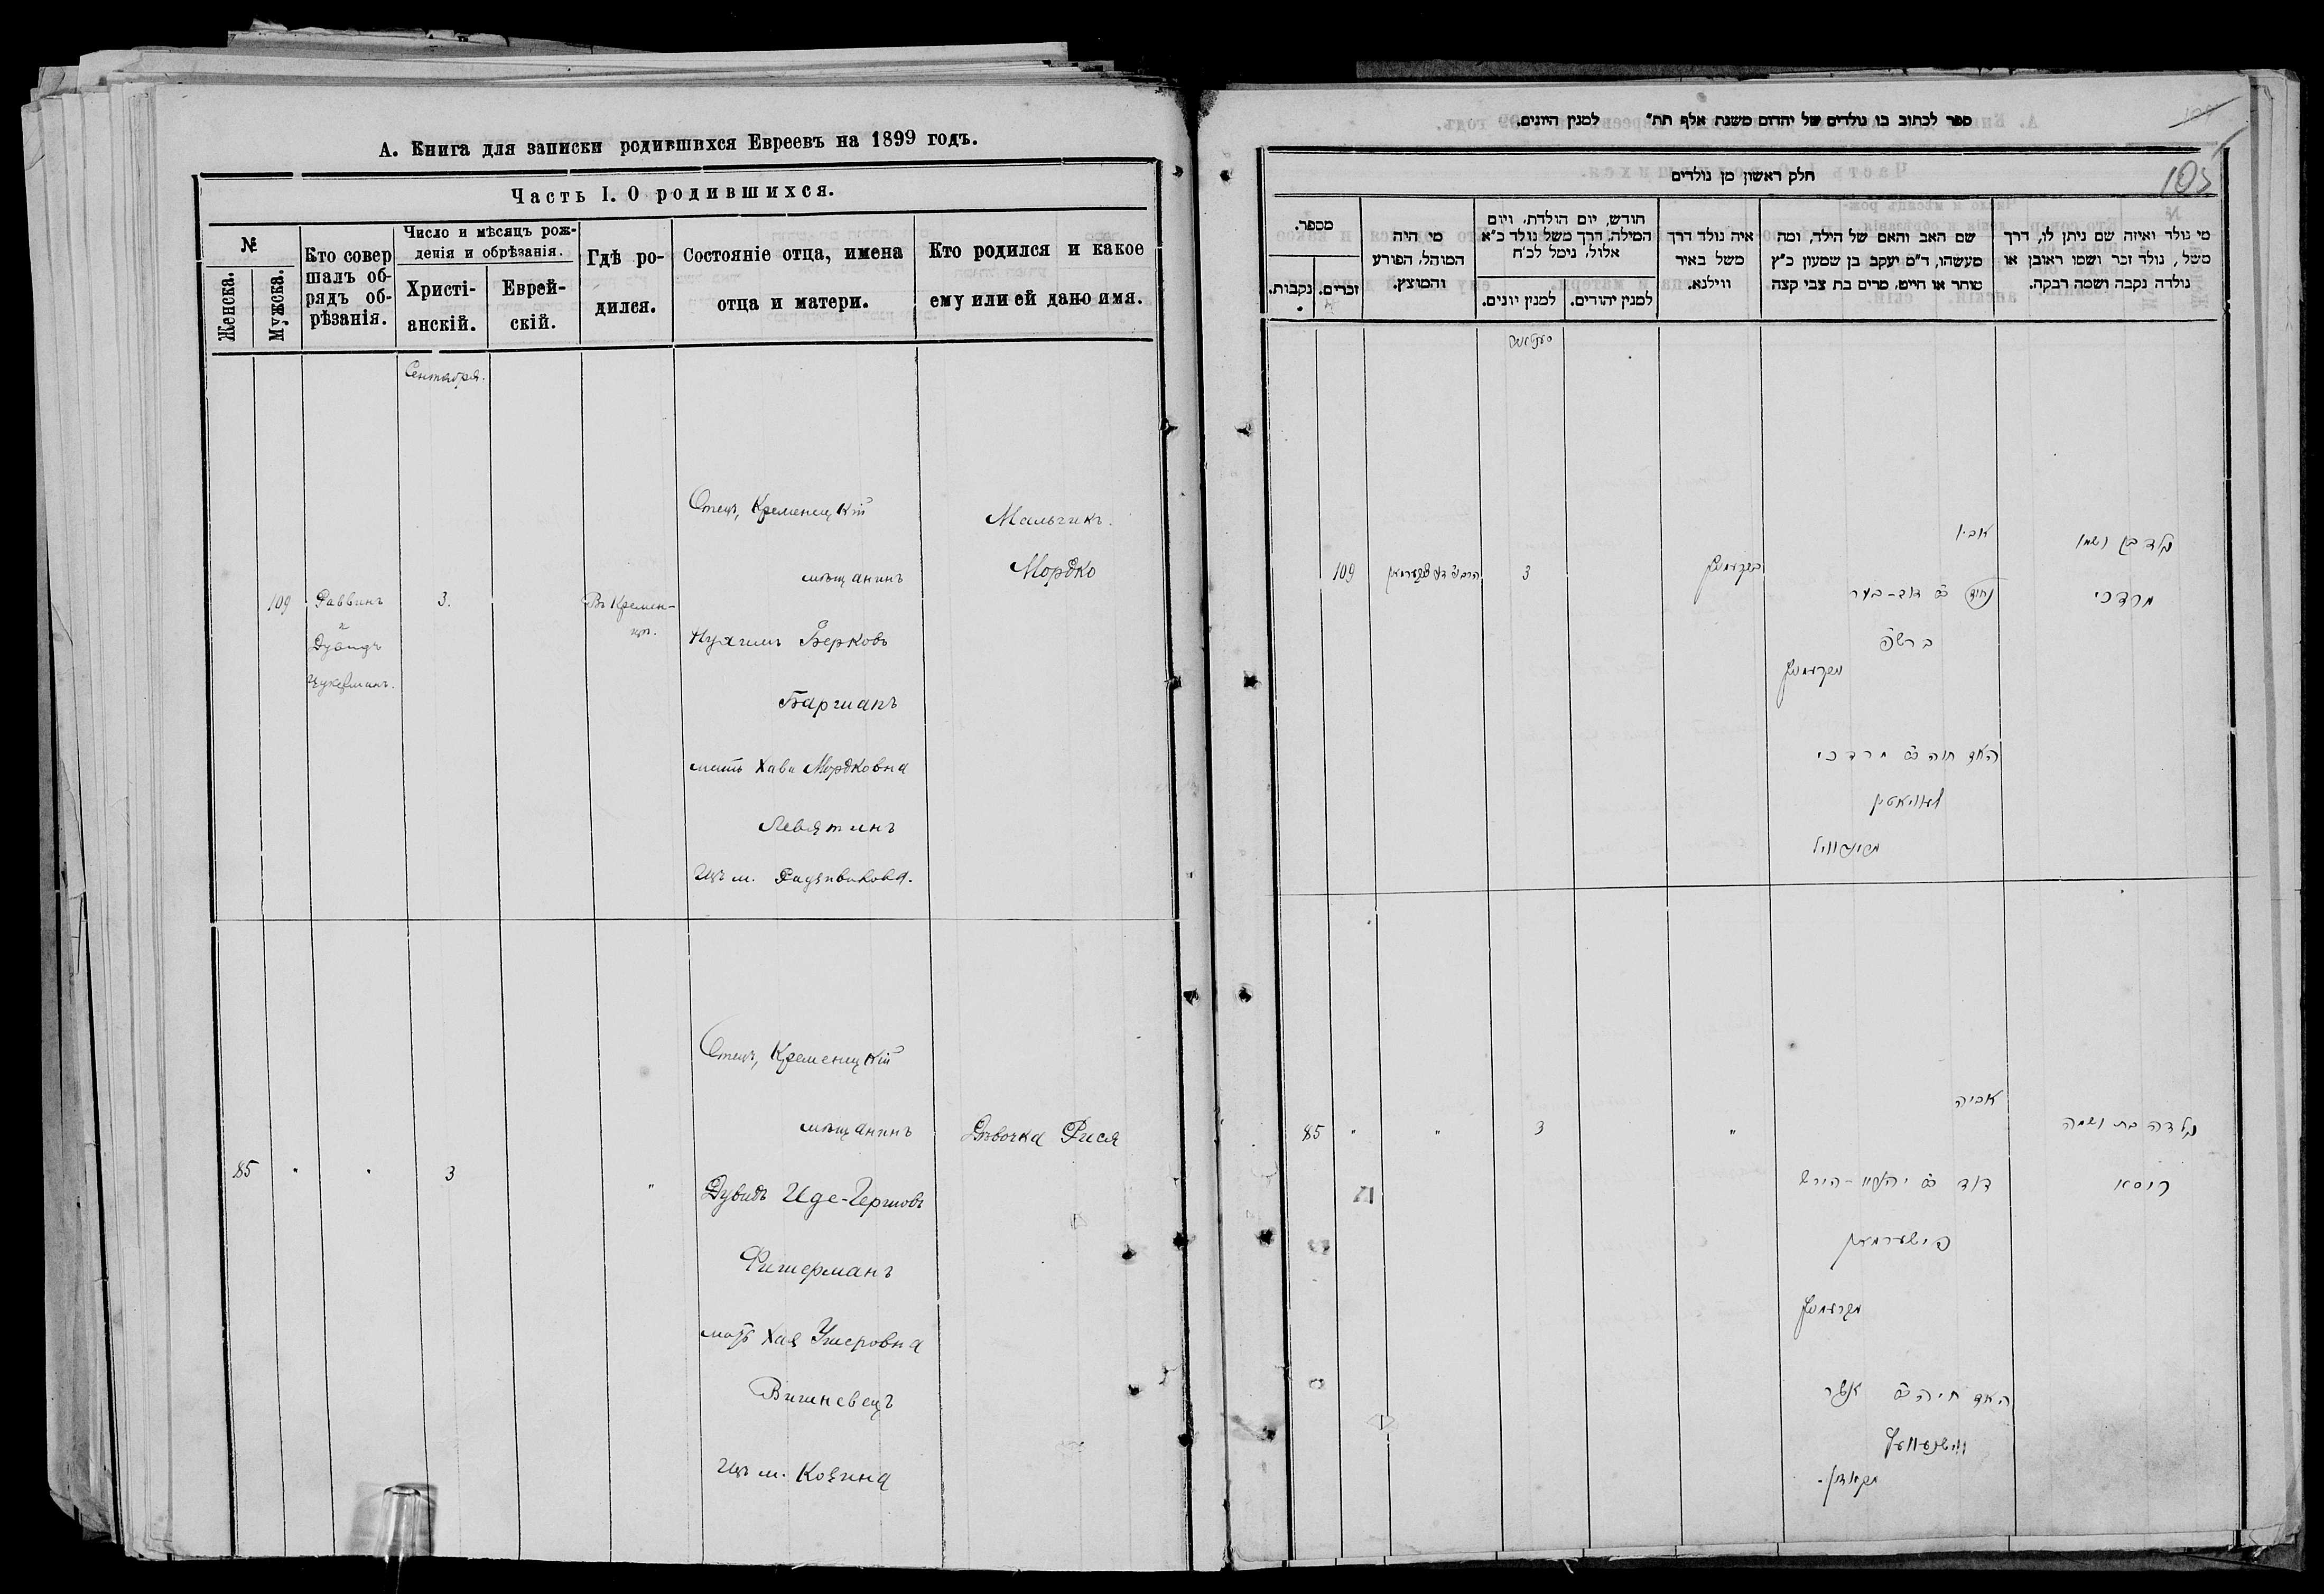 А. Книга для записки родившихся Евреевъ на 1899 годъ.
Часть I. О родившихся.
№
Женска.
Мужска.
Кто совер
шалъ об-
рядъ об-
рѣзанія.
Число и мѣсяцъ рож-
денія и обрѣзанія.
Христі-
анскій.
Еврей-
скій.
Гдѣ ро-
дился.
Состояніе отца, имена
отца и матери.
Кто родился и какое
ему или ей дано имя.
Сентября.
109
Раввинъ
и
Дувидъ
Цукерманъ.
3.
Въ Кремен-
цѣ.
Отецъ, Кременецкій
мѣщанинъ
Нухимъ Берковъ
Баршапъ
мать Хава Мордковна
Левятинъ
изъ м. Радзивилова.
Мальчикъ.
Мордко
85
"
"
3
"
Отецъ, Кременецкій
мѣщанинъ
Дувидъ Иде-Гершовъ
Фишерманъ
мать Хая Ушеровна
Вишневецъ
изъ м. Козина
Дѣвочка Рися
ספר לכתוב בו נולדים של יהדום משנת אלף תת״ למנין היונים.
105
חלק ראשון מן נולדים
מי נולד ואיזה שם ניתן לו, דרך
משל, נולד זכר ושמו ראובן או
נולדה נקבה ושמה רבקה.
שם האב והאם של הילד, ומה
מעשהו, ד״מ יעקב בן שמעון כ״ץ
סוחר או חייט, מרים בת צבי קצה
איה נולד דרך
משל באיר
ווילנא.
חודש, יום הולדת, ויום
המילה, דרך משל נולד כ״א
אלול, ניסל לכ״ח
למנין יהודים.
למנין יונים.
מי היה
המוהל, הפורע
והמוצץ.
מספר.
זכרים.
נקבות.
נולד בן ושמו
מרדכי
אביו
דוב-בער
בקרעמניץ
3
109
מקרעמניץ
האם חוה בת מרדכי
לעוויאטין
נולדה בת ושמה
ריסא
אביה
דוד
פישערמאן
מקרעמניץ
האם חיה בת אשר
ווישניוועץ
מקאזין.
"
3
"
"
85